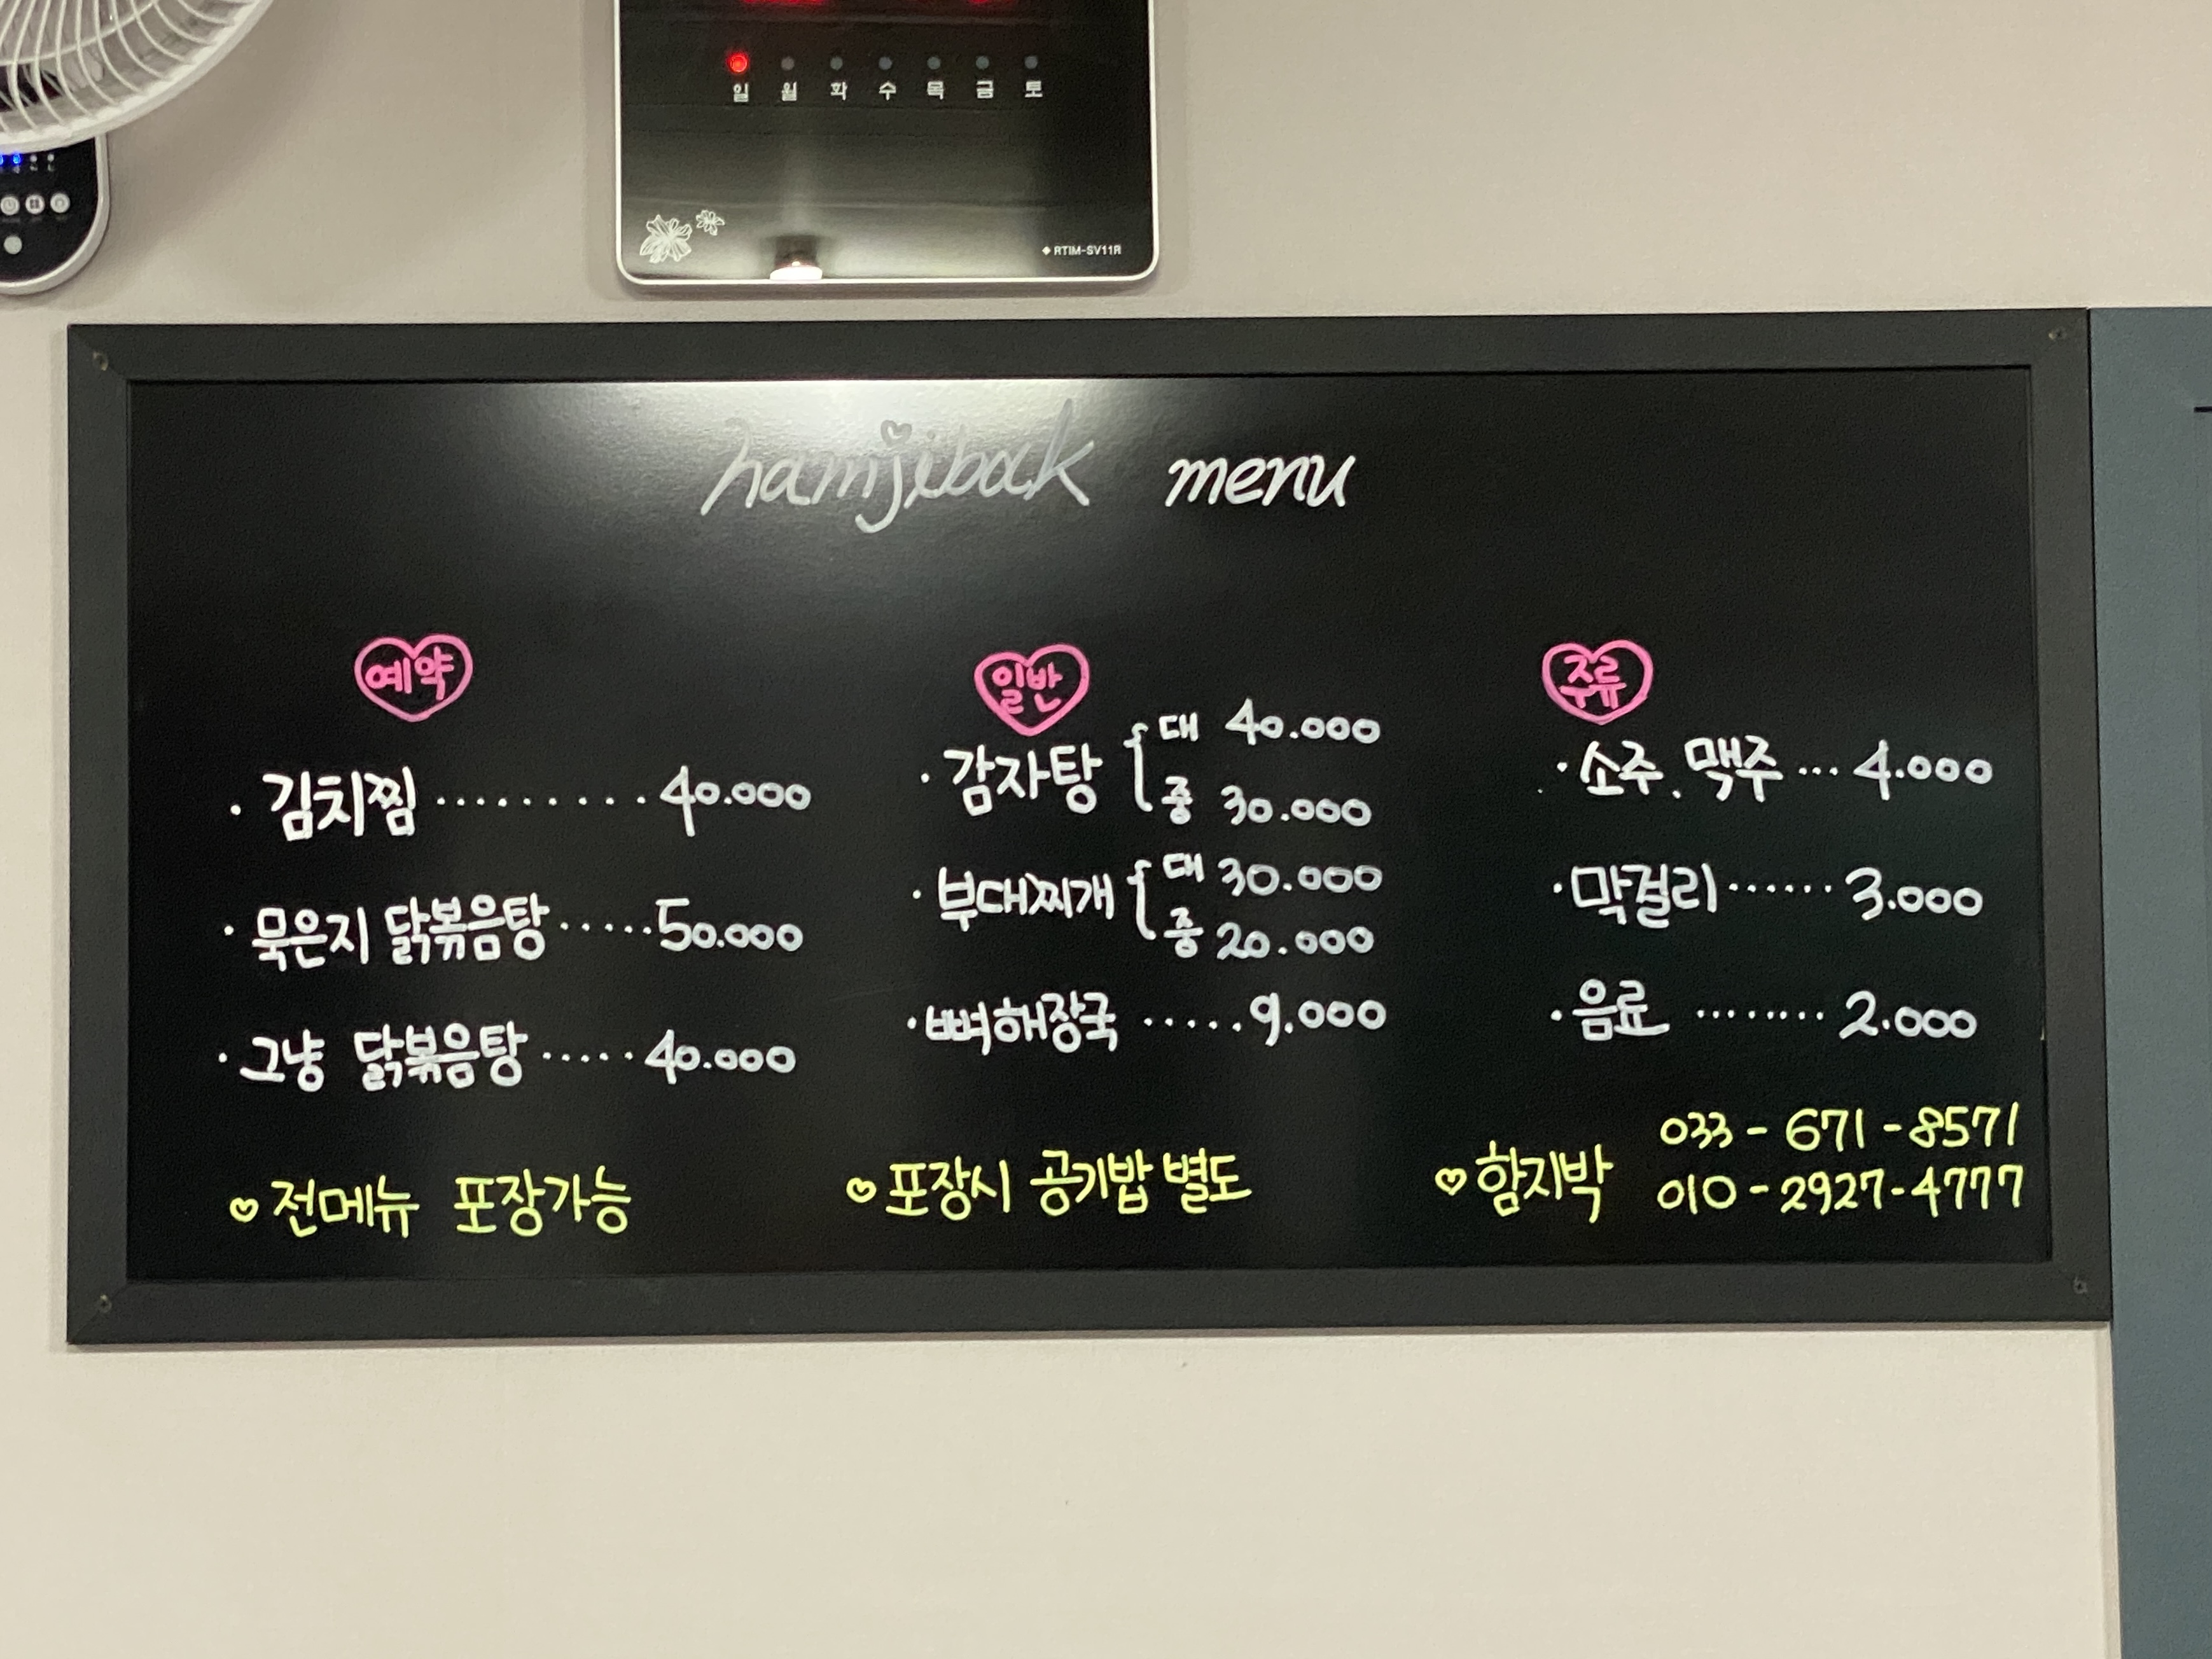 일 월 화 수 목 금 토
RTIM-SV11R
hamjiback menu
예약
· 김치찜 .......... 40.000
· 묵은지 닭볶음탕 ..... 50.000
· 그냥 닭볶음탕 ..... 40.000
♡ 전메뉴 포장가능
일반
· 감자탕 { 대 40.000
중 30.000
· 부대찌개 { 대 30.000
중 20.000
· 뼈해장국 ..... 9.000
♡ 포장시 공기밥 별도
주류
· 소주. 맥주 ... 4.000
· 막걸리 ...... 3.000
· 음료 ........ 2.000
♡ 함지박 033-671-8571
010-2927-4777